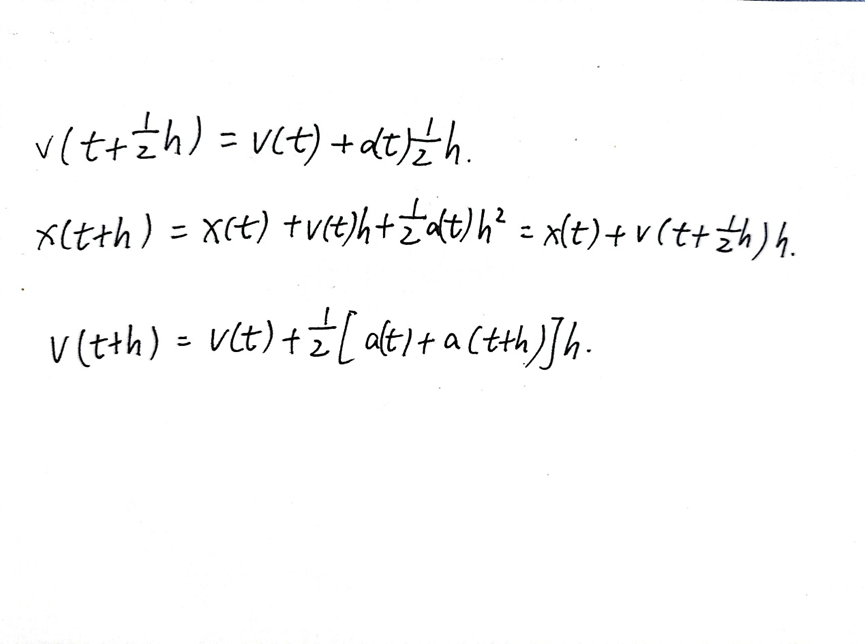 v(t+½h) = v(t) + a(t)½h.
x(t+h) = x(t) + v(t)h + ½a(t)h² = x(t) + v(t+½h)h.
v(t+h) = v(t) + ½[a(t) + a(t+h)]h.